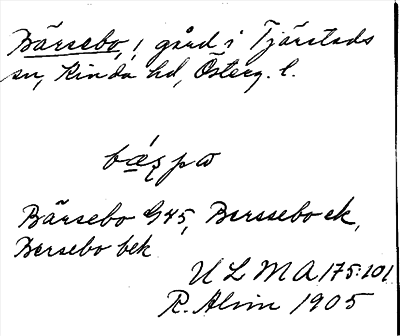 Bärsebo, 1 gård i Tjärstads
sn, Kinda hd, Österg. l.
Bärsebo G45, Berssebo ek,
Bersebo bek
ULMA 175:101
R. Alvin 1905